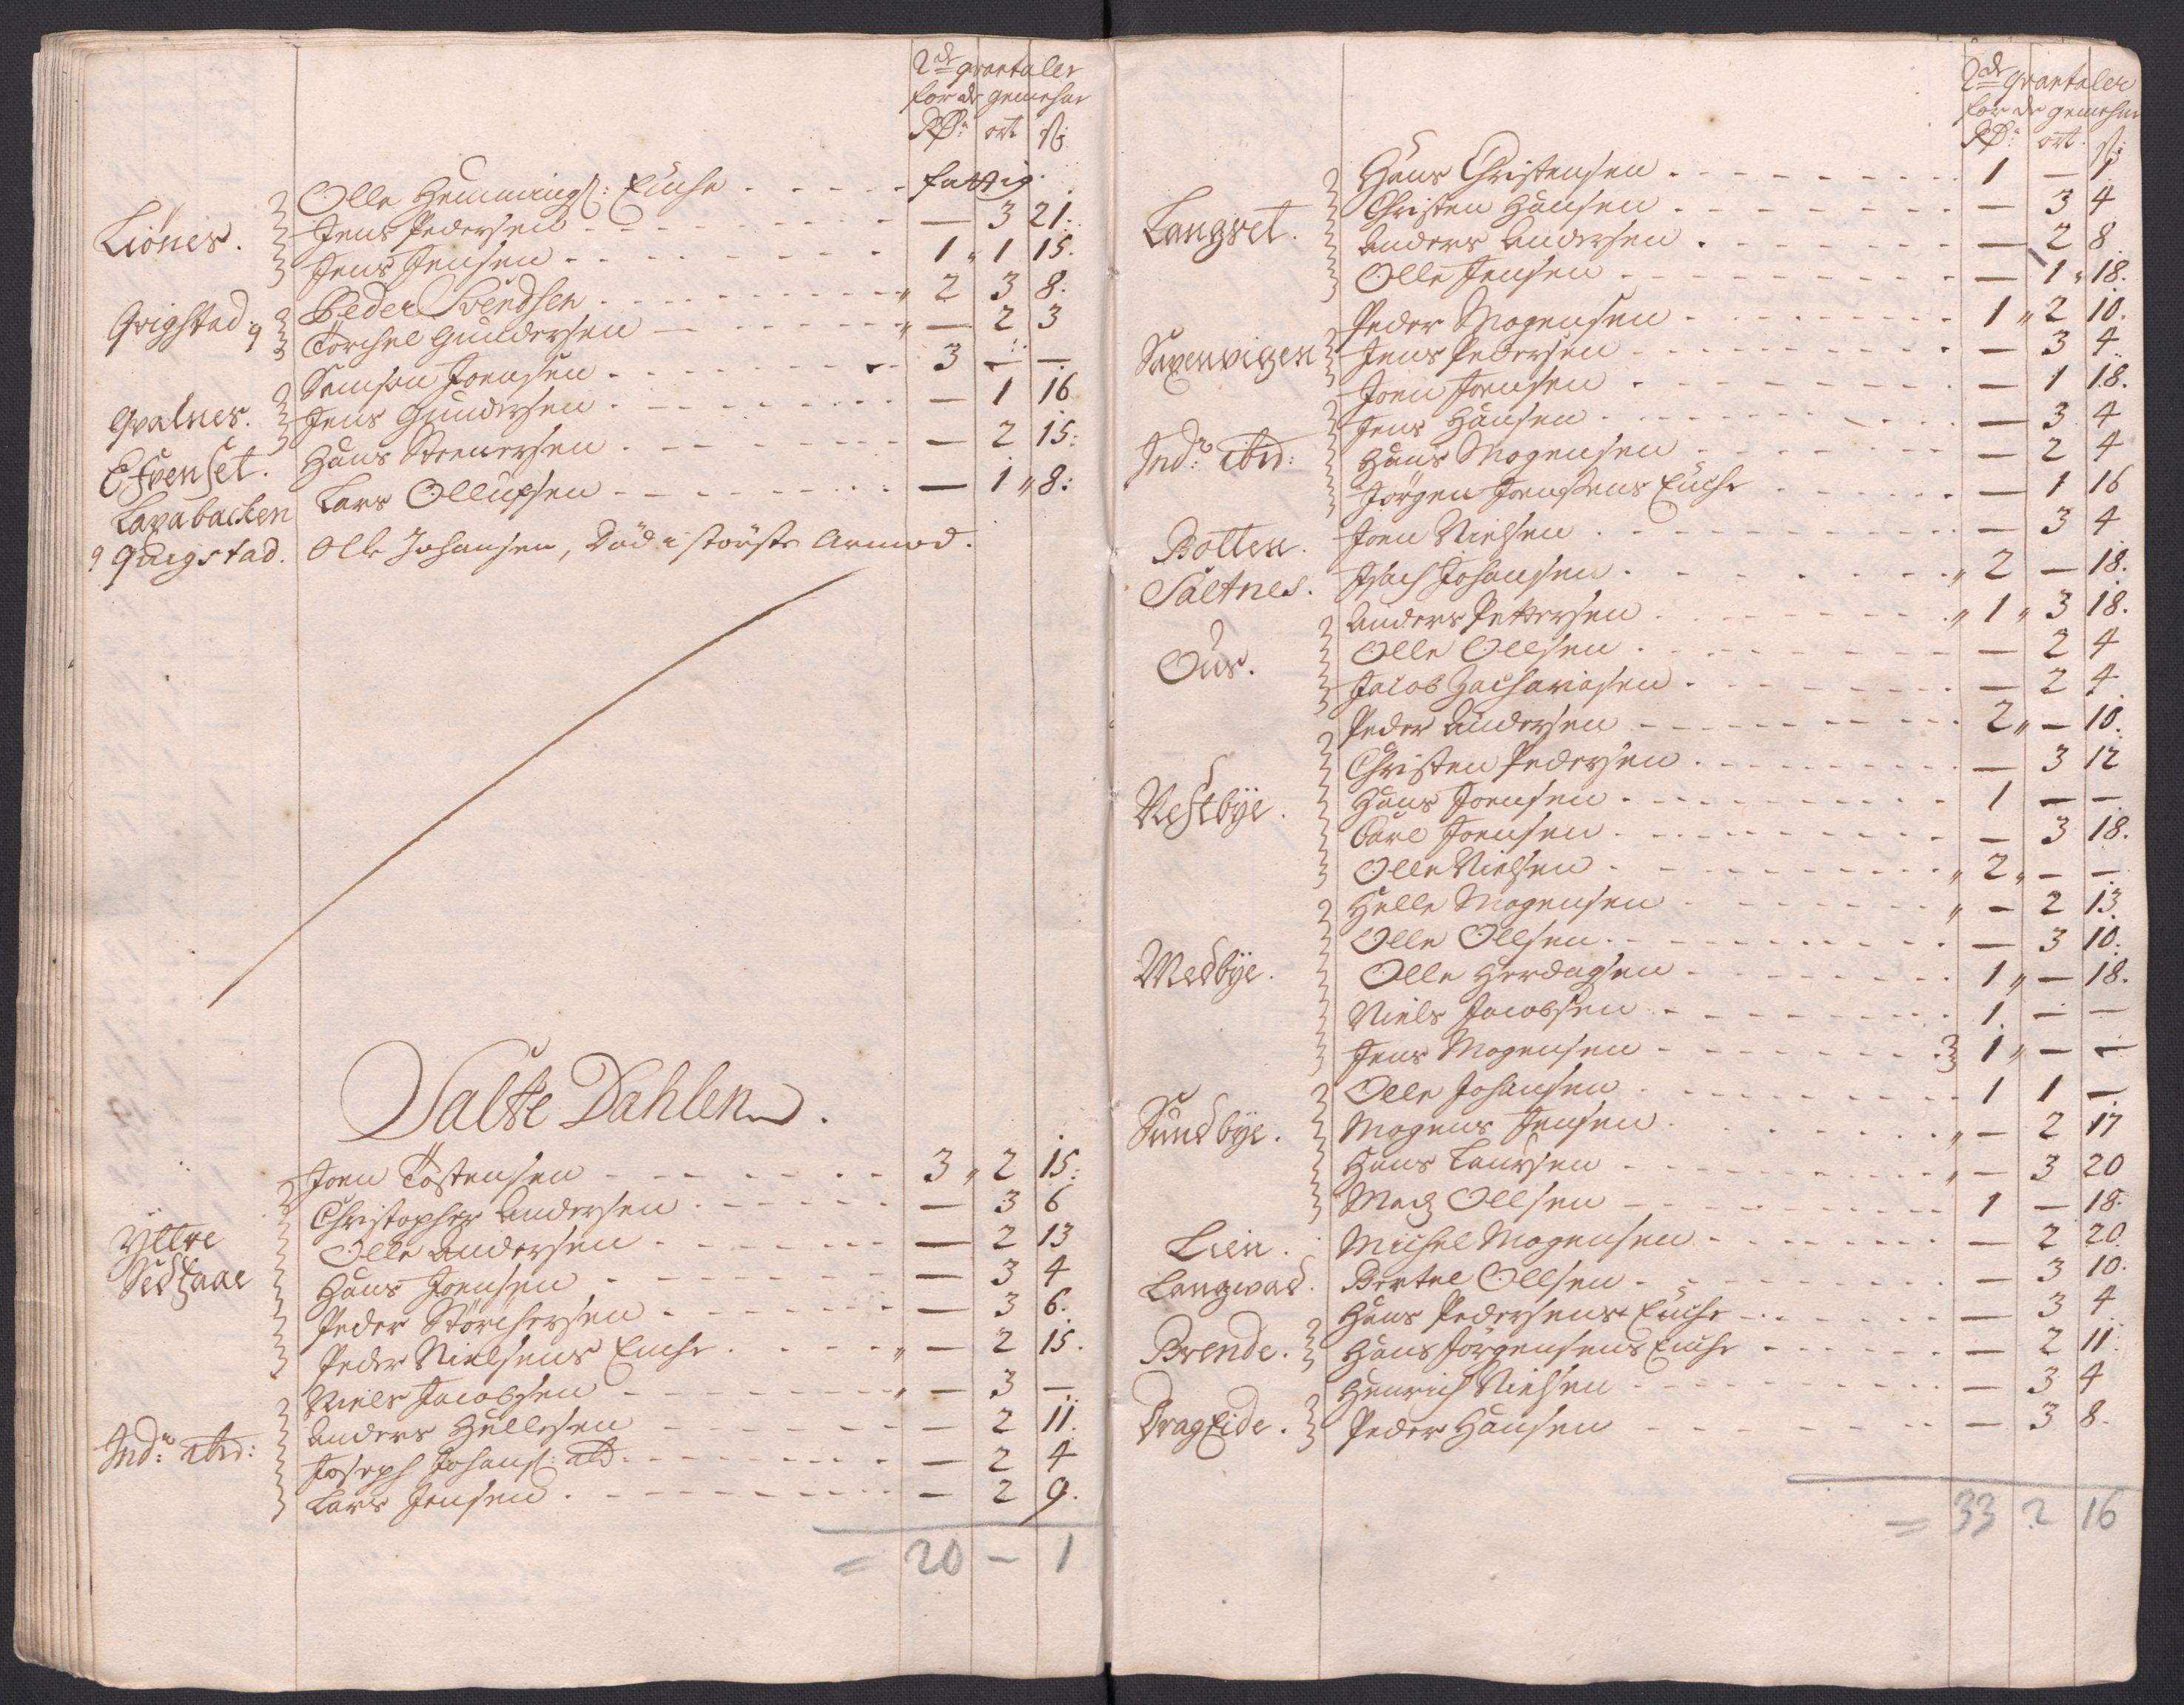 2de qvartaler
for de gemehne
RD: ort ß
Olle Hemmings: Enche . . . . . fattig.
Liönes. Jens Pedersen — 3 21.
Jens Jensen 1 1 15.
Qvigstad Peder Svendsen 2 3 8.
Törchel Gundersen — 2 3
Samson Joensen 3 — —
Qvalnes. Jens Gundersen — 1 16
Efvenset. Hans Steenersen — 2 15:
Laxabacken Lars Ollufsen — 1 8:
Qvigstad. Olle Johansen, Död i störste Armod.
Salte Dahlen.
Joen Töstensen 3 2 15:
Christopher Andersen — 3 6
Yttre Olle Andersen — 2 13
Hans Joensen — 3 4
Peder Störchersen — 3 6.
Peder Nielsens Enche — 2 15.
Niels Jacobsen — 3 —
Anders Hellesen — 2 11.
Ind: ibid: Joseph Johans: ibd: — 2 4
Lars Jensen — 2 9.
= 20 — 1
2de qvartaler
for de gemehne
RD: ort. ß
Hans Christensen 1 — 1
Christen Hansen — 3 4
Langset. Anders Andersen — 2 8
Olle Jensen — 1 18.
Peder Mogensen 1 2 10.
Saxenvigen Jens Pedersen — 3 4
Joen Joensen — 1 18.
Jens Hansen — 3 4
Ind: ibid: Hans Mogensen — 2 4
Jörgen Joensens Enche — 1 16
Botten. Joen Nielsen — 3 4
Saltnes. Isach Johansen 2 — 18.
Anders Pettersen 1 3 18.
Ous. Olle Ollsen — 2 4
Jacob Zachariasen — 2 4
Peder Andersen 2 — 10.
Christen Pedersen — 3 12
Vestbÿe. Hans Joensen 1 — —
Carl Joensen — 3 18.
Olle Nielsen 2 — —
Helle Mogensen — 2 13
Olle Ollsen — 3 10.
Medbÿe. Olle Herdagsen 1 — 18.
Niels Jacobsen 1 — —
Jens Mogensen 1 — —
Olle Johansen 1 1 —
Sundbÿe. Mogens Jensen — 2 17
Hans Laursen — 3 20
Madz Ollsen 1 — 18.
Lien. Michel Mogensen — 2 20.
Langvad. Bertel Ollsen — 3 10.
Hans Pedersens Enche — 3 4
Brende. Hans Jörgensens Enche — 2 11.
Henrich Nielsen — 3 4
DragEide. Peder Hansen — 3 8.
= 33 2 16